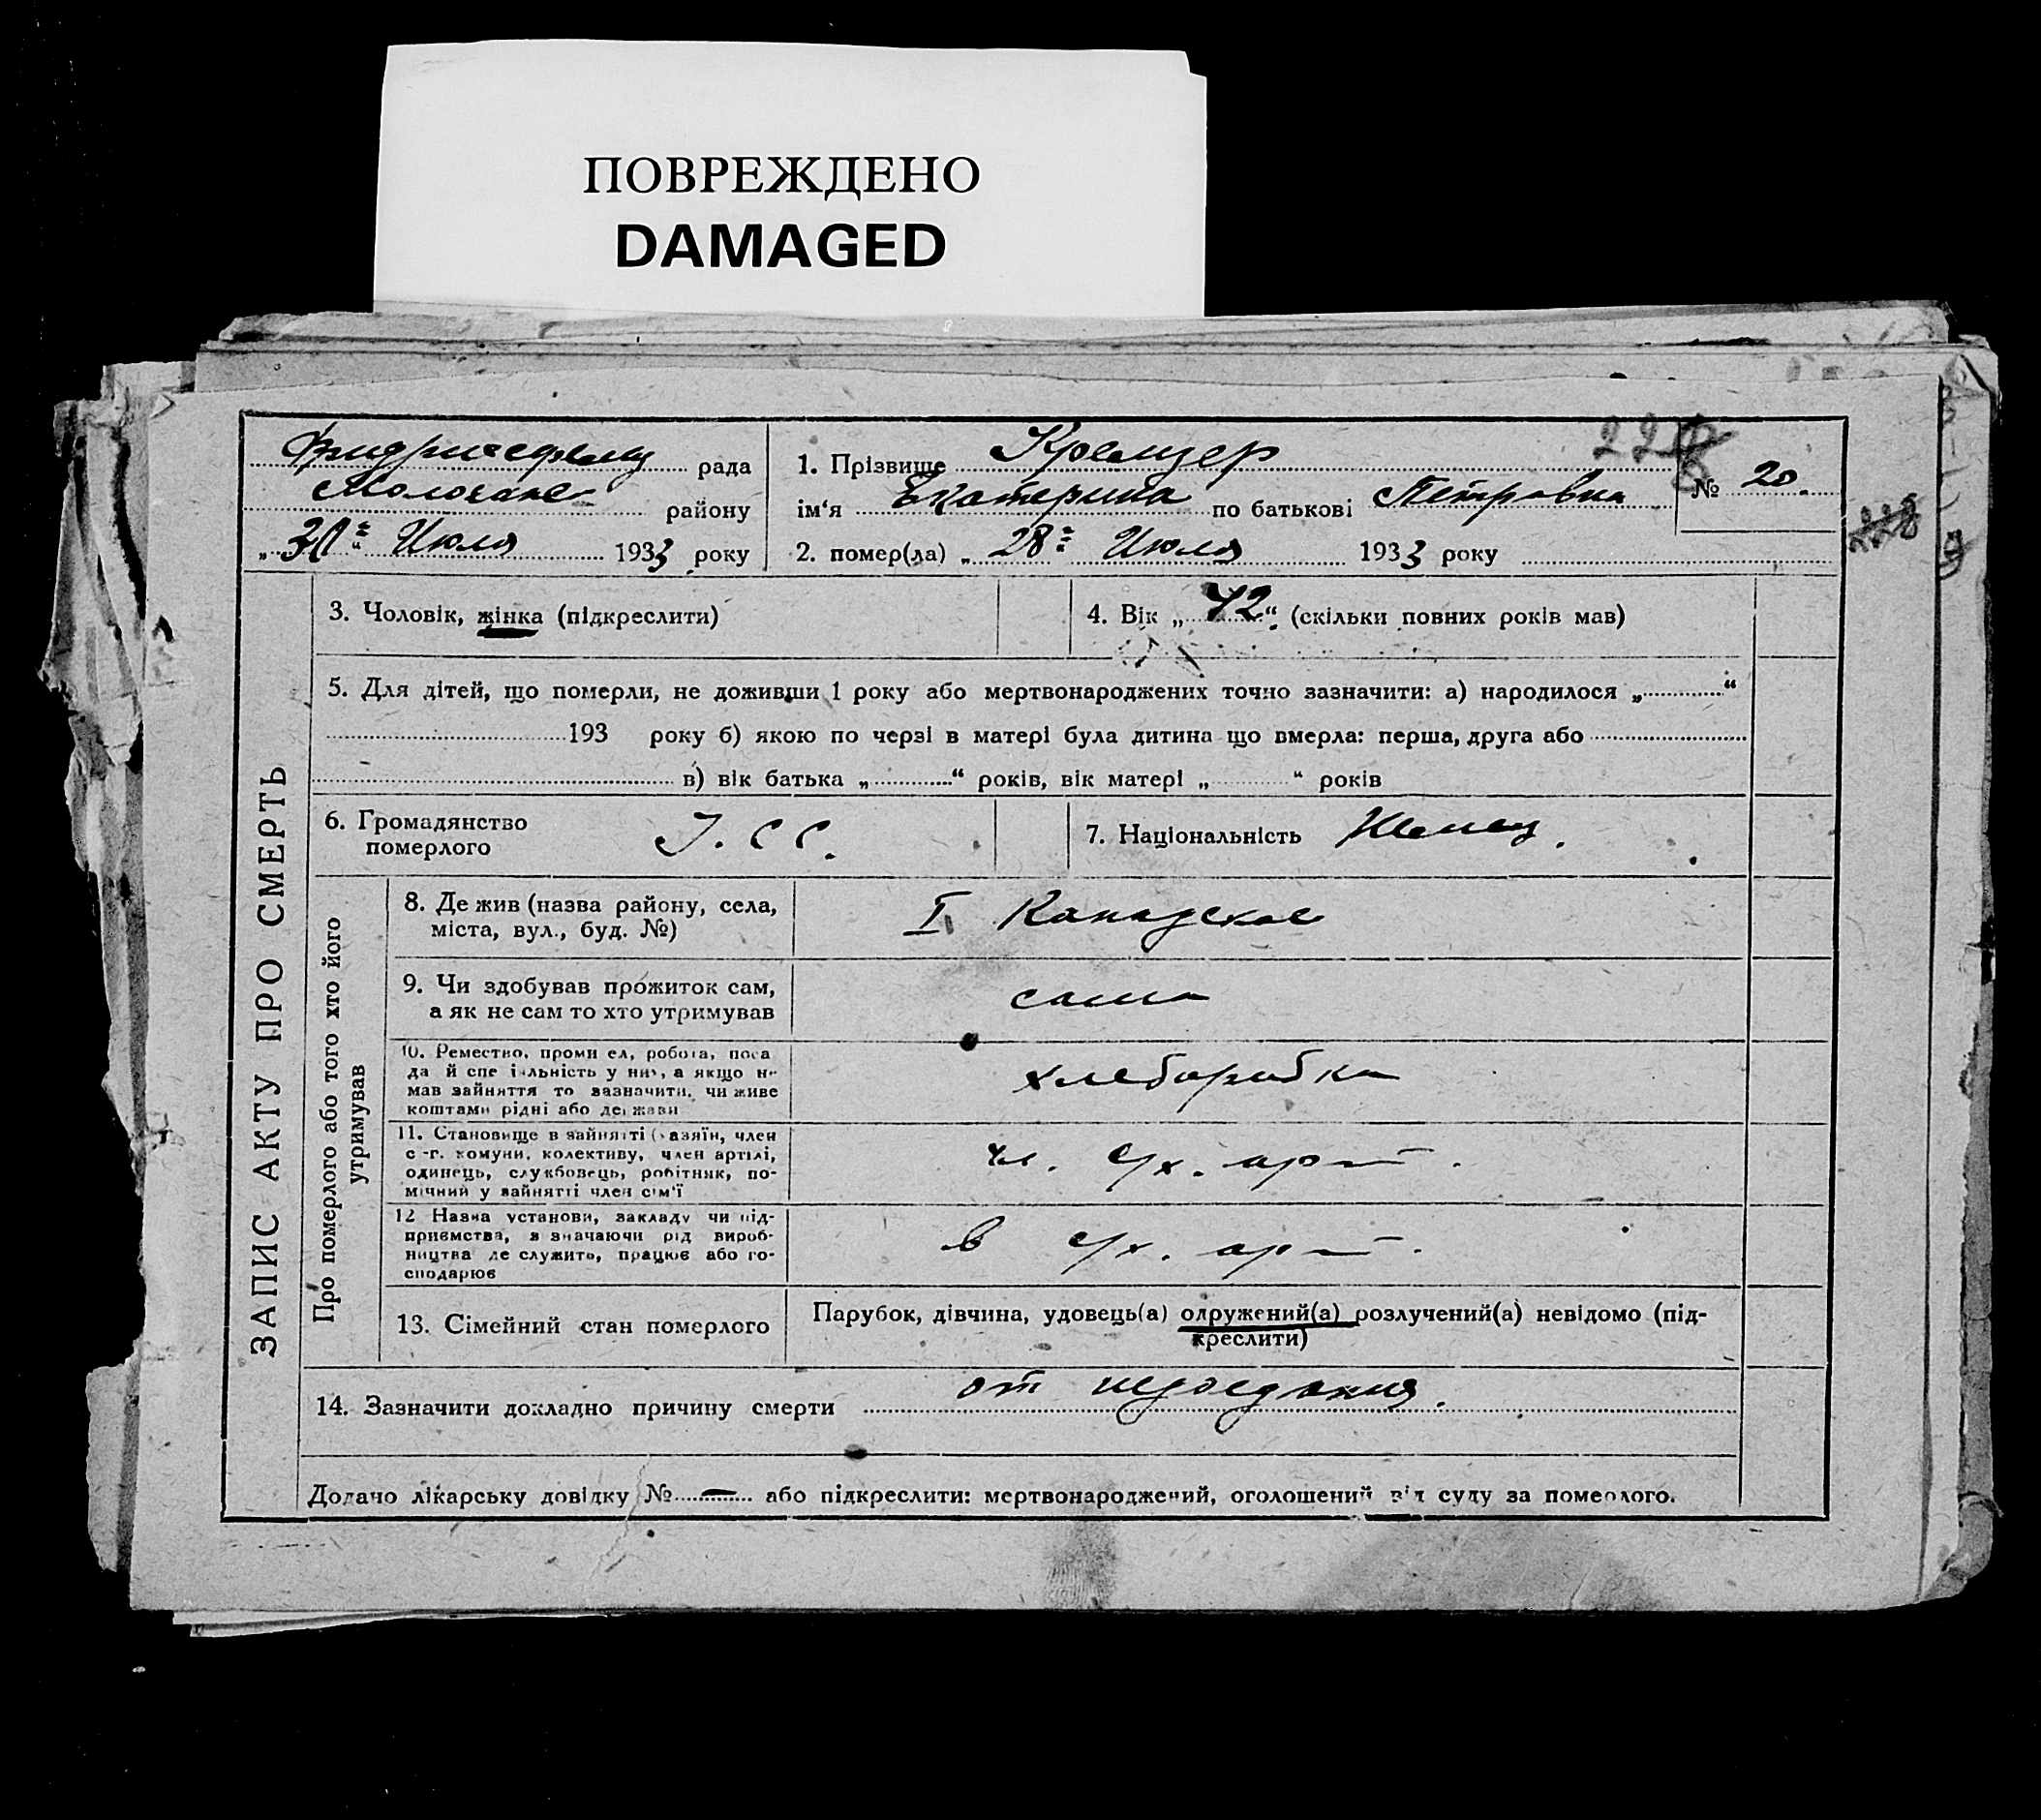 ПОВРЕЖДЕНО
DAMAGED
рада
району
Июля 1933 року
1. Прізвище Кремзер
ім'я Екатерина по батькові Петровна
2. помер(ла) „ 28 Июля 1933 року
№ 20.
ЗАПИС АКТУ ПРО СМЕРТЬ
3. Чоловік, жінка (підкреслити)
4. Вік „ 42 “ (скільки повних років мав)
5. Для дітей, що померли, не доживши 1 року або мертвонароджених точно зазначити: а) народилося „ “
193 року б) якою по черзі в матері була дитина що вмерла: перша, друга або
в) вік батька „ “ років, вік матері „ “ років
6. Громадянство
померлого
7. Національність Немец.
Про померлого або того хто його
утримував
8. Де жив (назва району, села,
міста, вул., буд. №)
I Канадское
9. Чи здобував прожиток сам,
а як не сам то хто утримував
сама
10. Ремество, проми ел, робота, поса
да й спе іальність у них, а якщо н
мав зайняття то зазначити, чи живе
коштами рідні або держави
хлеборобка
11. Становище в зайнятті (хазяїн, член
с-г. комуни, колективу, член артілі,
одинець, службовець, робітник, по-
мічний у зайнятті член сім'ї
чл. с/х. арт.
12 Назва установи, закладу чи під-
приємства, зазначаючи рід вироб-
ництва де служить, працює або го-
сподарює
в с/х. арт.
13. Сімейний стан померлого
Парубок, дівчина, удовець(а) одружений(а) розлучений(а) невідомо (під-
креслити)
14. Зазначити докладно причину смерти от недоедания.
Додано лікарську довідку № — або підкреслити: мертвонароджений, оголошений від суду за померлого.